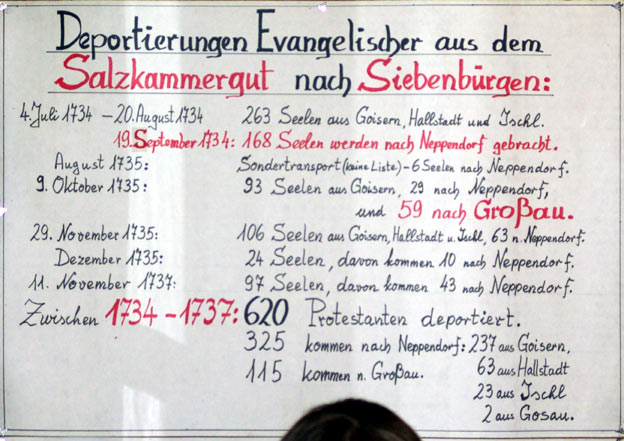 Deportierungen Evangelischer aus dem
Salzkammergut nach Siebenbürgen:
4. Juli 1734 – 20. August 1734 263 Seelen aus Goisern, Hallstadt und Ischl.
19. September 1734: 168 Seelen werden nach Neppendorf gebracht.
August 1735: Sondertransport (keine Liste) – 6 Seelen nach Neppendorf.
9. Oktober 1735: 93 Seelen aus Goisern, 29 nach Neppendorf,
und 59 nach Großau.
29. November 1735: 106 Seelen aus Goisern, Hallstadt u. Ischl, 63 n. Neppendorf.
Dezember 1735: 24 Seelen, davon kommen 10 nach Neppendorf.
11. November 1737: 97 Seelen, davon kommen 43 nach Neppendorf.
Zwischen 1734 – 1737: 620 Protestanten deportiert.
325 kommen nach Neppendorf: 237 aus Goisern,
63 aus Hallstadt
115 kommen n. Großau. 23 aus Ischl
2 aus Gosau.